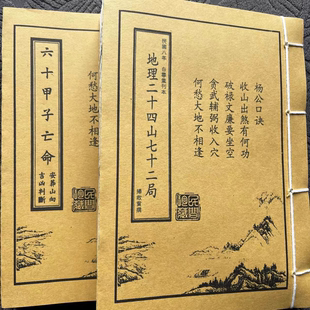 杨公口诀
收山出煞有何功
破禄文廉要坐空
贪武辅弼收入穴
何愁大地不相逢
地理二十四山七十二局
何愁大地不相逢
六十甲子亡命
安葬山向
吉凶判断